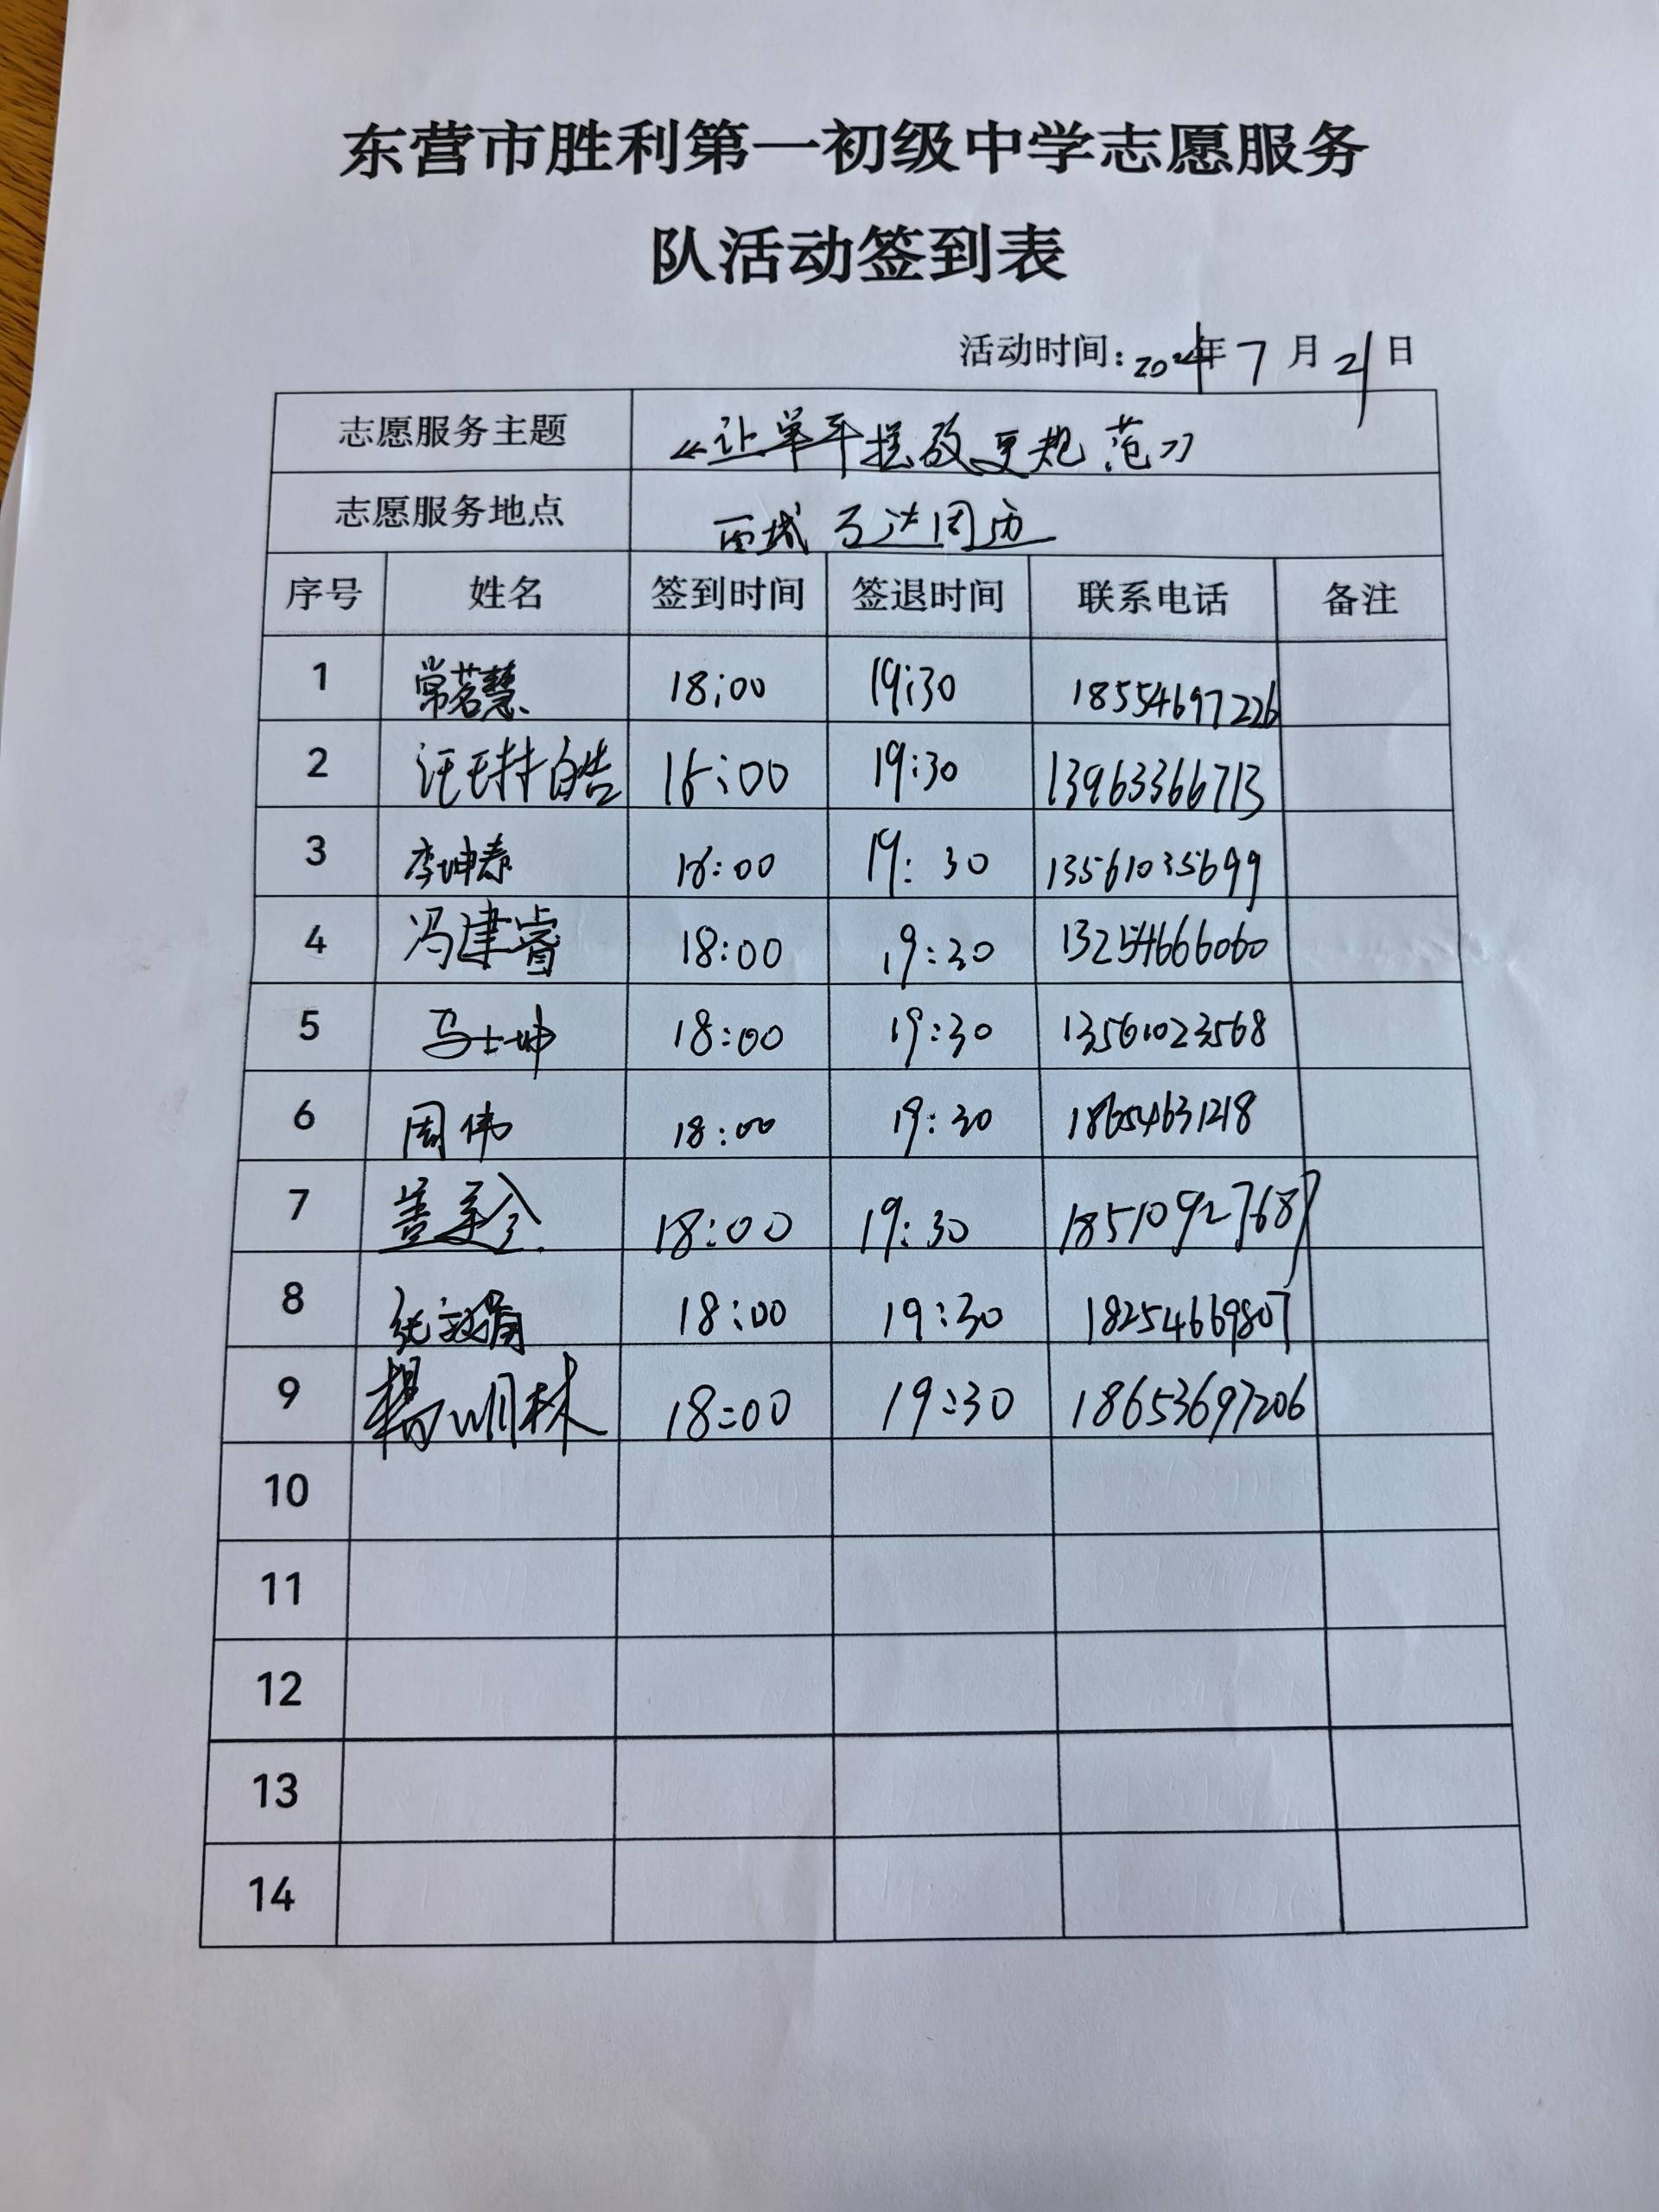 东营市胜利第一初级中学志愿服务
队活动签到表
活动时间：2024年7月21日
志愿服务主题 《让单车摆放更规范》
志愿服务地点 西城万达周边
序号 姓名 签到时间 签退时间 联系电话 备注
1 常茗慧 18:00 19:30 18554697226
2 汪玤皓 18:00 19:30 13963366713
3 李坤泰 18:00 19:30 13561035699
4 冯建睿 18:00 19:30 13254666060
5 马士坤 18:00 19:30 13561023568
6 周伟 18:00 19:30 18654631218
7 18:00 19:30 18510927687
8 18:00 19:30 18254669807
9 杨明林 18:00 19:30 18653697206
10
11
12
13
14